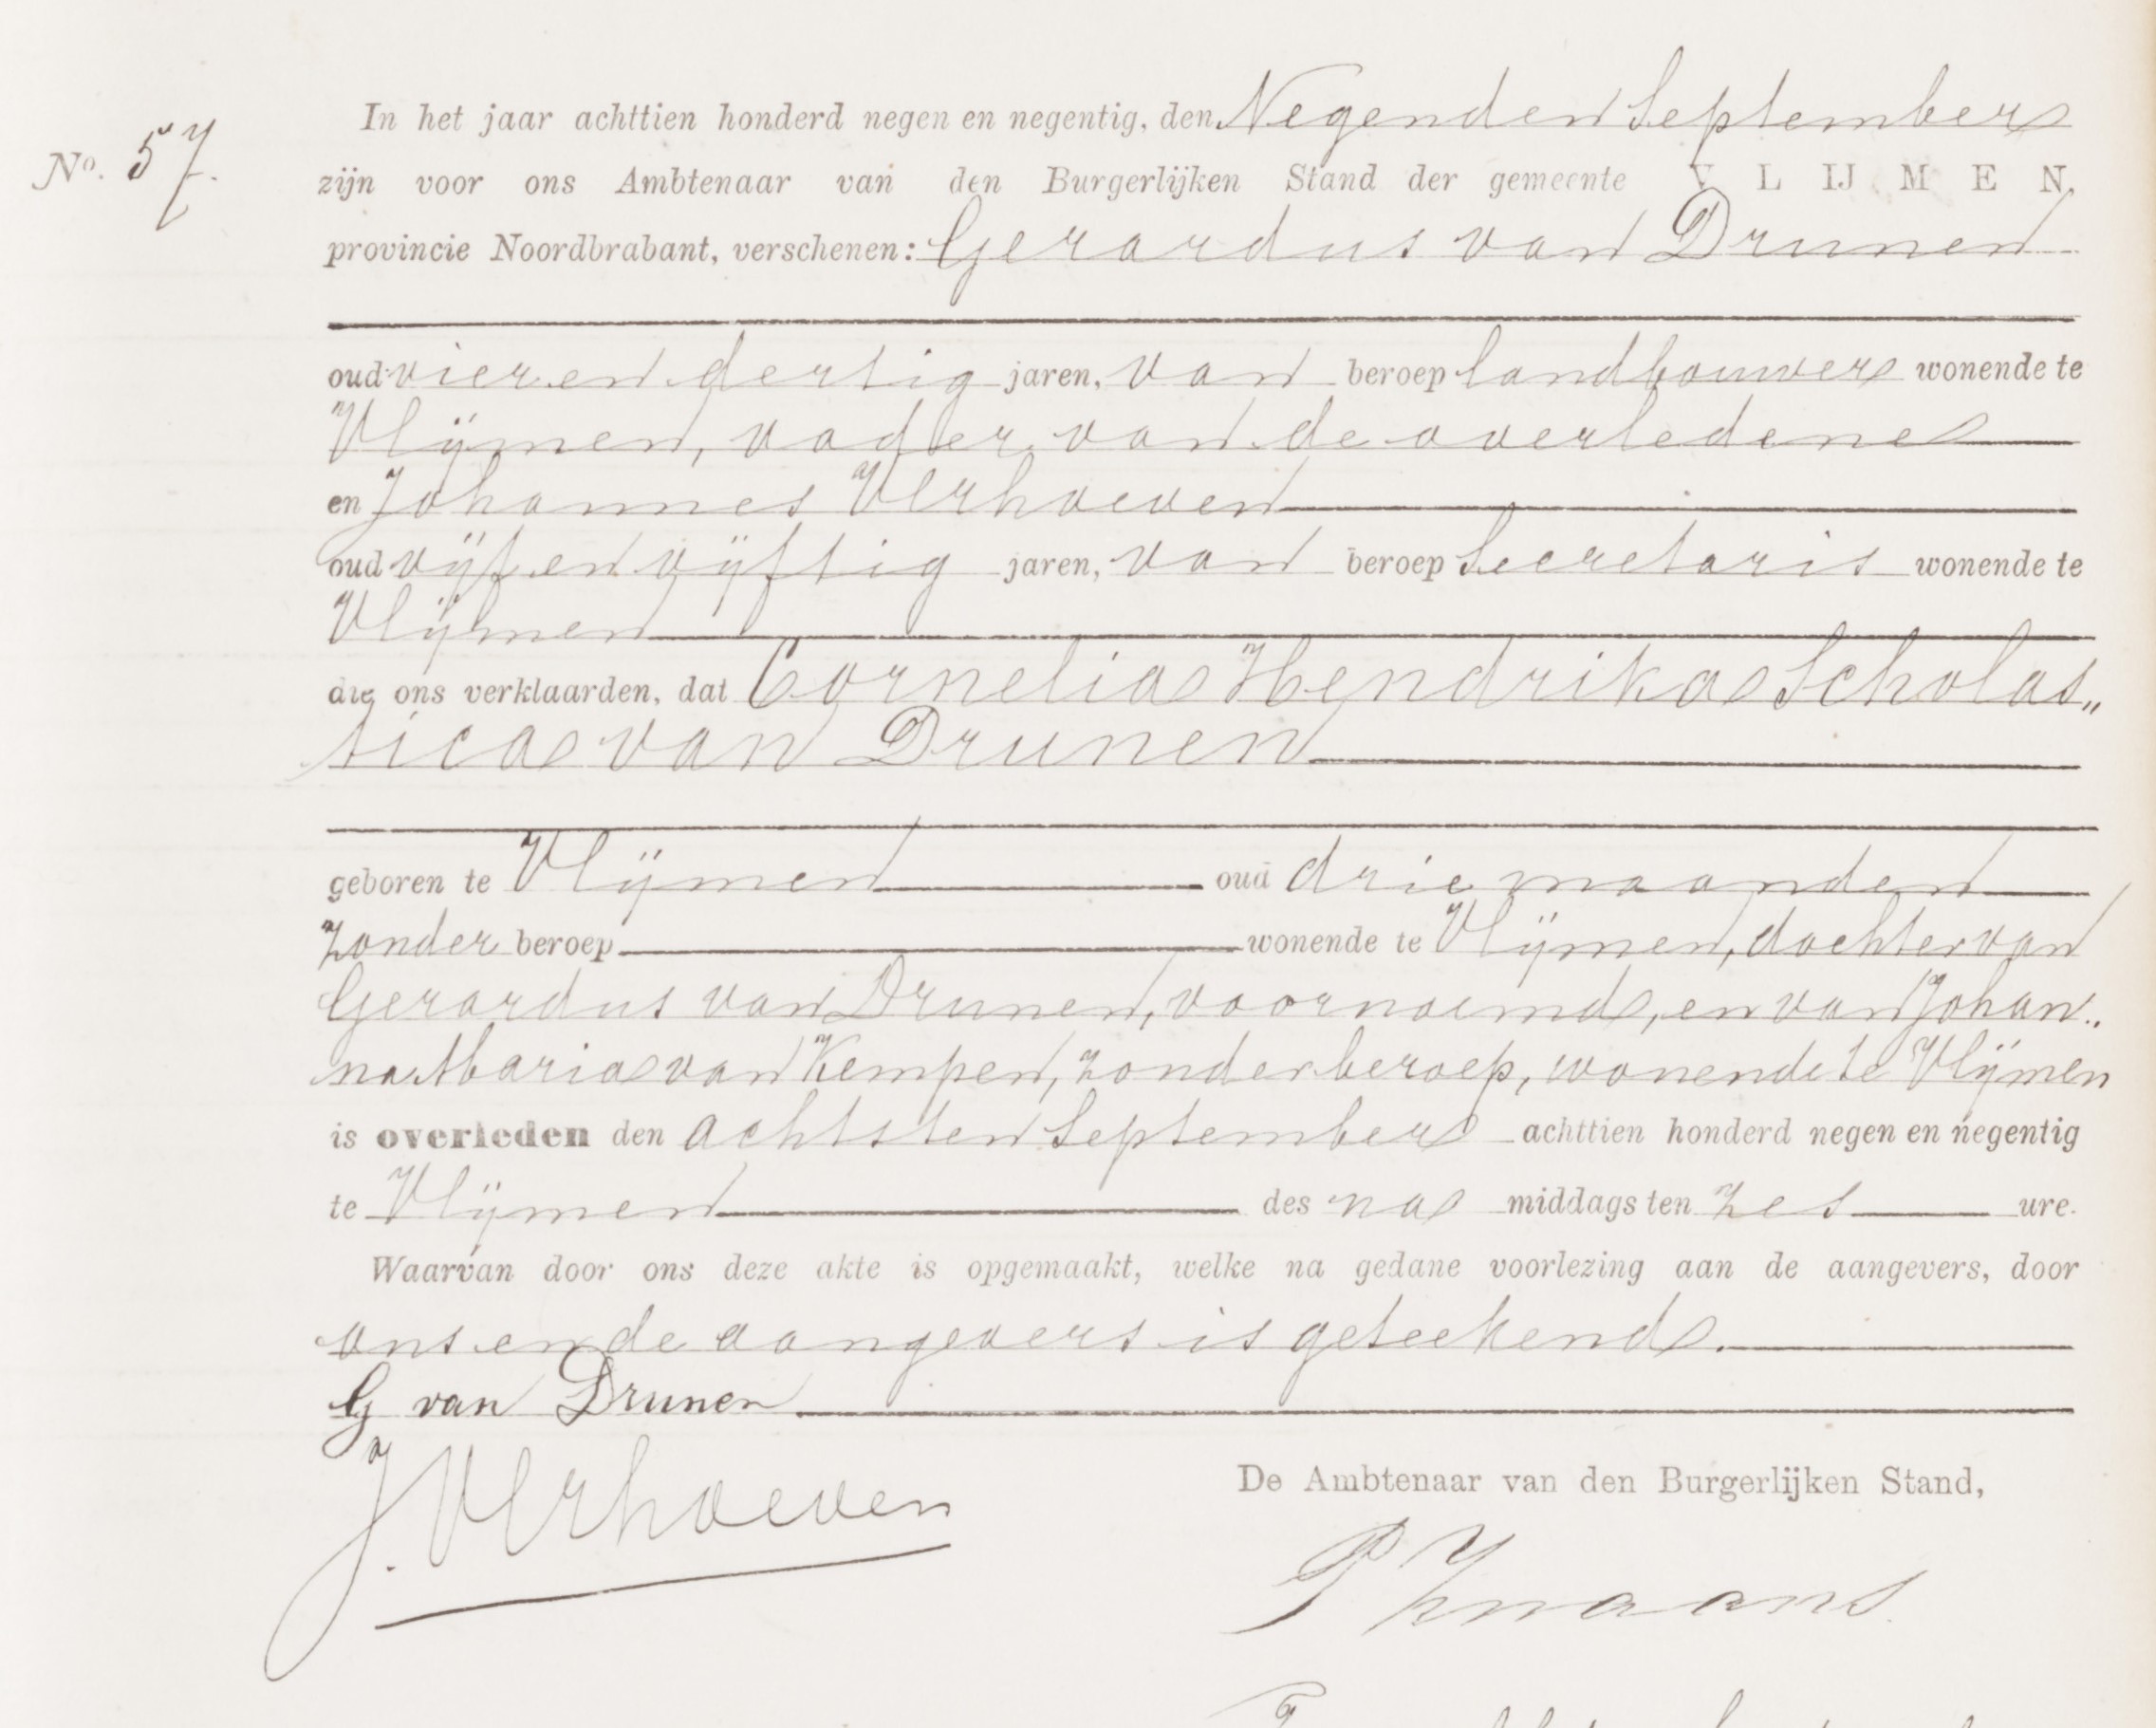 In het jaar achttien honderd negen en negentig, den Negenden September
No. 57.
zijn voor ons Ambtenaar van den Burgerlijken Stand der gemeente VLIJMEN,
provincie Noordbrabant, verschenen: Gerardus van Drunen
oud vier en dertig jaren, van beroep landbouwer wonende te
Vlijmen, vader van de overledene
en Johannes Verhoeven
oud vijf en vijftig jaren, van beroep Secretaris wonende te
Vlijmen
die ons verklaarden, dat Cornelia Hendrika Scholas„
tica van Drunen
geboren te Vlijmen oud drie maanden
zonder beroep wonende te Vlijmen, dochter van
Gerardus van Drunen, voornoemd, en van Johan„
na Maria van Kempen, zonder beroep, wonende te Vlijmen
is overleden den achtsten September achttien honderd negen en negentig
te Vlijmen des na middags ten zes ure.
Waarvan door ons deze akte is opgemaakt, welke na gedane voorlezing aan de aangevers, door
ons en de aangevers is geteekend.
G van Drunen
J. Verhoeven
De Ambtenaar van den Burgerlijken Stand,